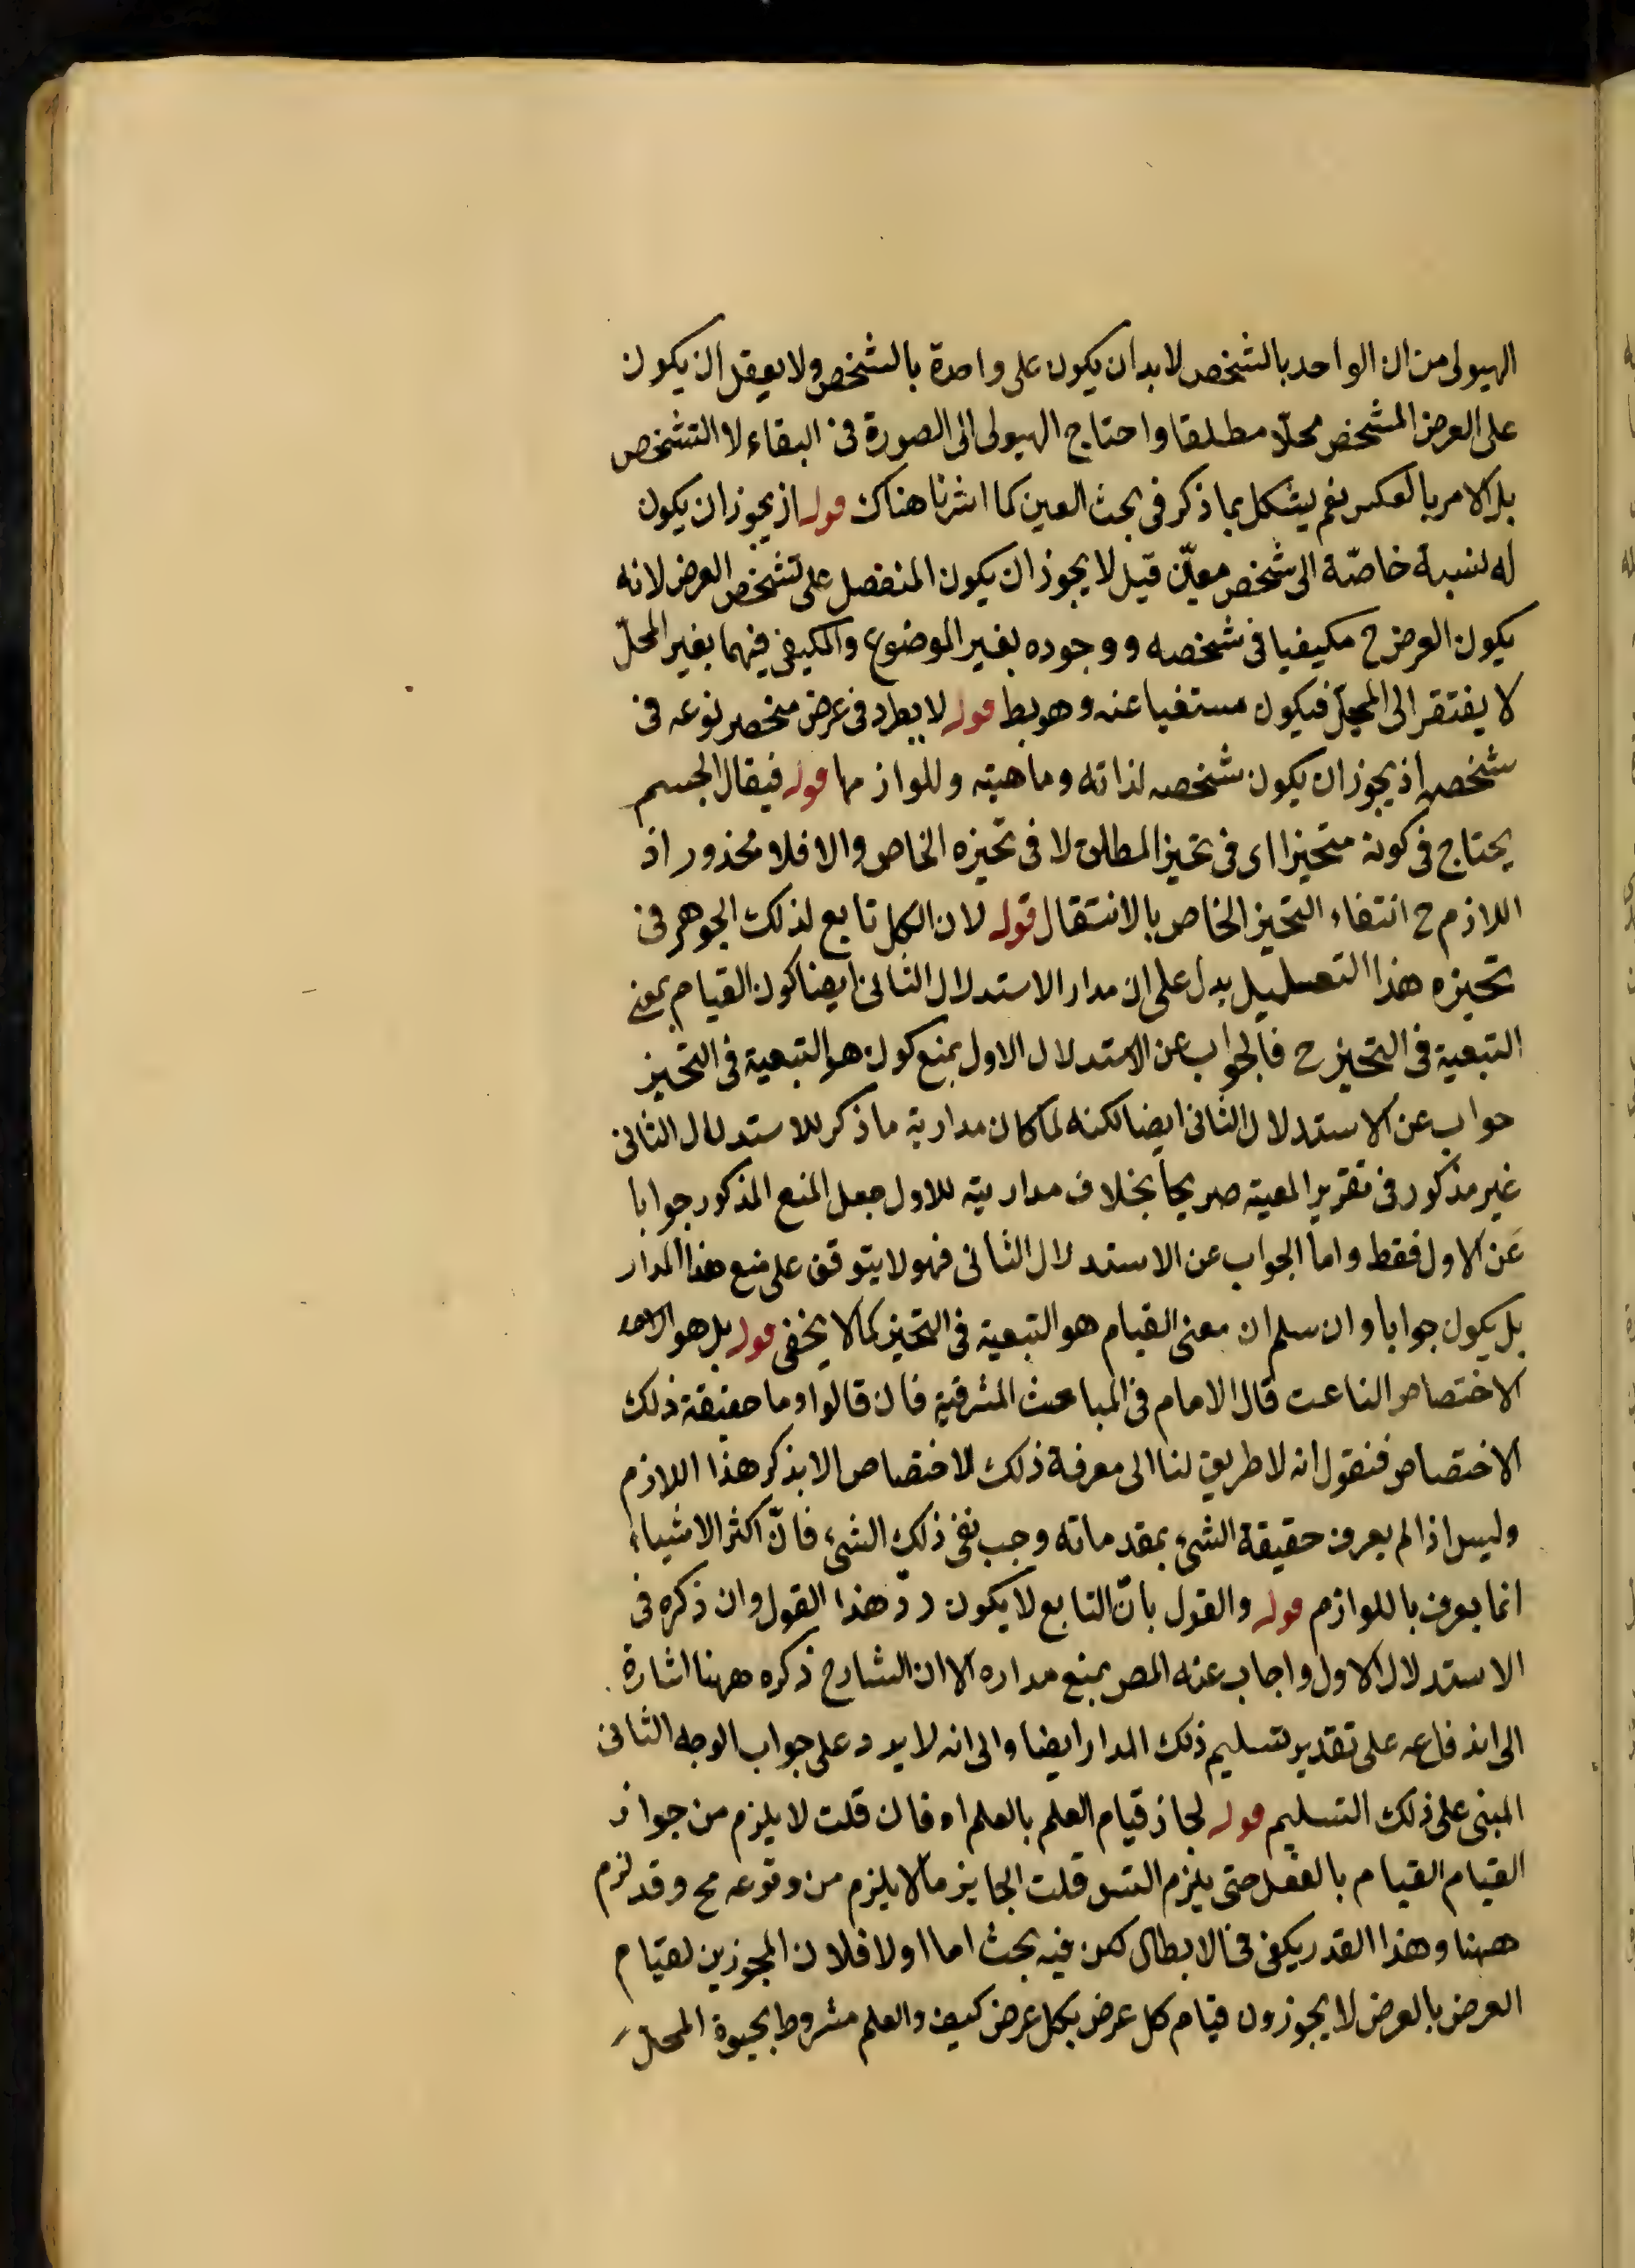 الهيولى من ان الواحد بالشخص لا بد ان يكون على واحدة بالشخص ولا يعقل ان يكون
على العرض المشخص محلّا مطلقا واحتاج الهيولى الى الصورة فى البقاء لا التشخص
بل الامر بالعكس نعم يشكل بما ذكر فى بحث العين كما اشرنا هناك قوله اذ يجوز ان يكون
له نسبة خاصّة الى شخص معيّن قيل لا يجوز ان يكون المنفصل على تشخص العرض لانه
يكون العرض ح مكيفيا فى شخصه ووجوده بغير الموضوع والمكيفى فيهما بغير المحلّ
لا يفتقر الى المحلّ فيكون مستغنيا عنه وهو بط قوله لا يطرد فى عرض منحصر نوعه فى
شخصه اذ يجوز ان يكون شخصه لذاته وماهيته وللوازمها قوله فيقال الجسم
يحتاج فى كونه متحيزا اى فى تحيز المطلق لا فى تحيزه الخاص والا فلا محذور اذ
اللازم ح انتفاء التحيز الخاص بالانتقال قوله لان الكل تابع لذلك الجوهر فى
تحيزه هذا التعليل يدل على ان مدار الاستدلال الثانى ايضا كون القيام بمعنى
التبعية فى التحيز ح فالجواب عن الاستدلال الاول بمنع كونه هو التبعية فى التحيز
جواب عن الاستدلال الثانى ايضا لكنه لما كان مدارية ما ذكر للاستدلال الثانى
غير مذكور فى تقرير المعية صريحا بخلاف مداريته للاول جعل المنع المذكور جوابا
عن الاول فقط واما الجواب عن الاستدلال الثانى فهو لا يتوقف على منع هذا المدار
بل يكون جوابا وان سلم ان معنى القيام هو التبعية فى التحيز كما لا يخفى قوله بل هو
الاختصاص الناعت قال الامام فى المباحث المشرقية فان قالوا وما حقيقة ذلك
الاختصاص فنقول انه لا طريق لنا الى معرفة ذلك الاختصاص الا بذكر هذا اللازم
وليس اذا لم يعرف حقيقة الشىء بمقدماته وجب نفى ذلك الشىء فانّ اكثر الاشياء
انما يعرف باللوازم قوله والقول بانّ التابع لا يكون ردّ هذا القول وان ذكره فى
الاستدلال الاول واجاب عنه المص بمنع مداره الا ان الشارح ذكره ههنا اشارة
الى اندفاعه على تقدير تسليم ذلك المدار ايضا والى انه لا يرد على جواب الوجه الثانى
المبنى على ذلك التسليم قوله لجاز قيام العلم بالعلم اه فان قلت لا يلزم من جواز
القيام القيام بالفعل حتى يلزم التس قلت الجايز ما لا يلزم من وقوعه مح وقد لزم
ههنا وهذا القدر يكفى فى الابطال لكن فيه بحث اما اولا فلان المجوزين لقيام
العرض بالعرض لا يجوزون قيام كل عرض بكل عرض كيف والعلم مشروط بحيوة المحل